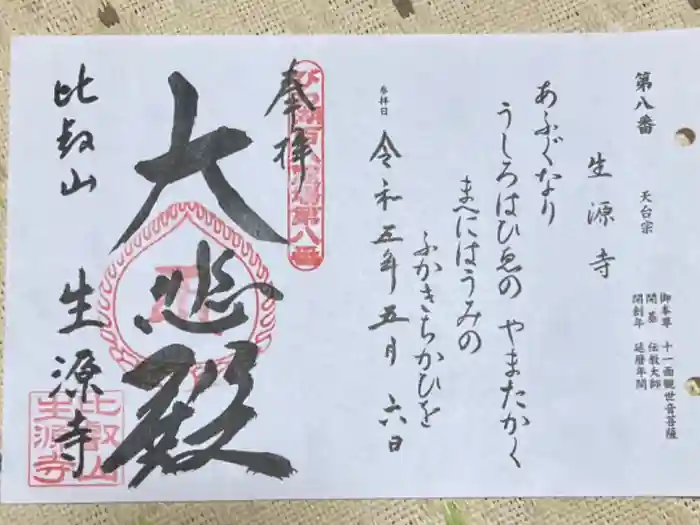 第八番
天台宗
御本尊 十一面観世音菩薩
開基 伝教大師
開創年 延暦年間
生源寺
あふぐなり
うしろはひゑの やまたかく
まへにはうみの
ふかきちかひを
参拝日
令和五年五月六日
奉拝
びわ湖百八霊場第八番
大悲殿
比叡山 生源寺
比叡山
生源寺